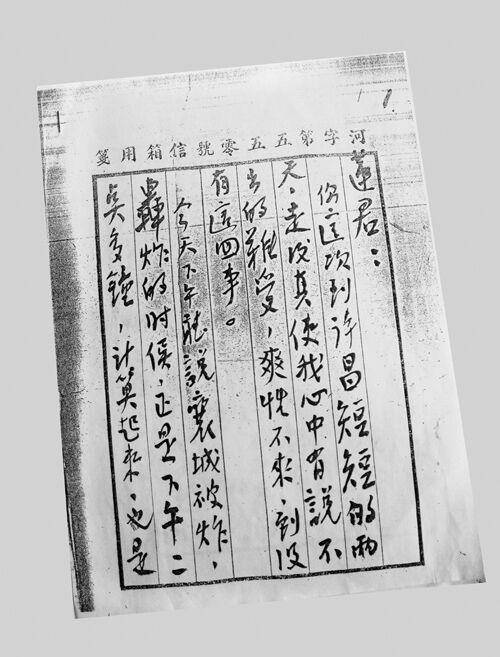 1.
河字第五五零號信箱用箋
蓮君：
你這次到許昌短短的兩
天，走後真使我心中有說不
出的難受，爽性不來，到沒
有這回事。
今天下午聽說襄城被炸，
轟炸的时候，正是下午二
點多鐘，計算起來，也是